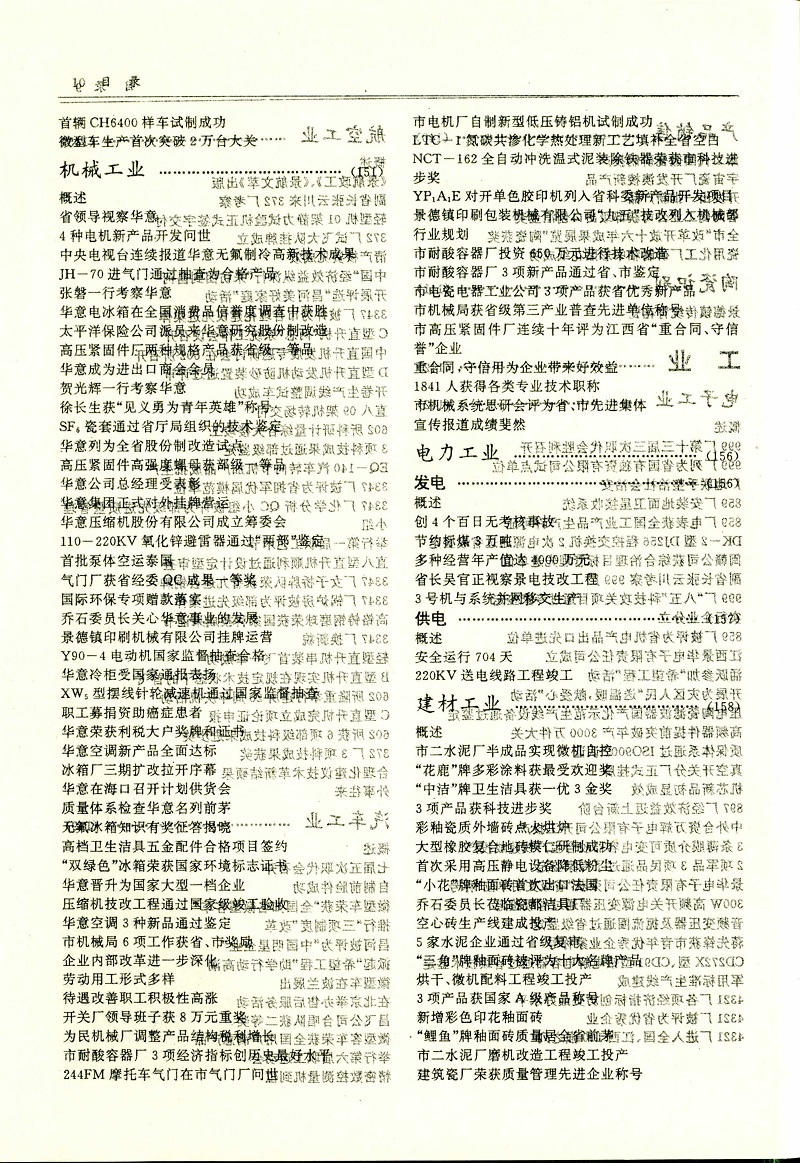 10 目 录
首辆 CH6400 样车试制成功
微型车生产首次突破 2 万台大关
机械工业 (151)
概述
省领导视察华意
4 种电机新产品开发问世
中央电视台连续报道华意无氟制冷高新技术成果
JH-70 进气门通过抽查为合格产品
张磐一行考察华意
华意电冰箱在全国消费品信誉度调查中获胜
太平洋保险公司派员来华意研究股份制改造
高压紧固件厂两种规格产品获省级一等品
华意成为进出口商会会员
贺光辉一行考察华意
徐长生获“见义勇为青年英雄”称号
SF₆ 瓷套通过省厅局组织的技术鉴定
华意列为全省股份制改造试点
高压紧固件高强度螺母获部级一等品
华意公司总经理受表彰
华意集团正式对外挂牌营运
华意压缩机股份有限公司成立筹委会
110-220KV 氧化锌避雷器通过“两部”鉴定
首批泵体空运泰国
气门厂获省经委 QC 成果一等奖
国际环保专项赠款落实
乔石委员长关心华意事业的发展
景德镇印刷机械有限公司挂牌运营
Y90-4 电动机国家监督抽查合格
华意冷柜受国家通报表扬
XW₅ 型摆线针轮减速机通过国家监督抽查
职工募捐资助癌症患者
华意荣获利税大户奖牌和证书
华意空调新产品全面达标
冰箱厂三期扩改拉开序幕
华意在海口召开计划供货会
质量体系检查华意名列前茅
无氟冰箱知识有奖征答揭晓
高档卫生洁具五金配件合格项目签约
“双绿色”冰箱荣获国家环境标志证书
华意晋升为国家大型一档企业
压缩机技改工程通过国家级竣工验收
华意空调 3 种新品通过鉴定
市机械局 6 项工作获省、市奖励
企业内部改革进一步深化
劳动用工形式多样
待遇改善职工积极性高涨
开关厂领导班子获 8 万元重奖
为民机械厂调整产品结构税利增长
市耐酸容器厂 3 项经济指标创历史最好水平
244FM 摩托车气门在市气门厂问世
市电机厂自制新型低压铸铝机试制成功
LTC-1 氮碳共渗化学热处理新工艺填补全省空白
NCT-162 全自动冲洗湿式泥装除铁器荣获市科技进
步奖
YP₁A₁E 对开单色胶印机列入省科委新产品开发项目
景德镇印刷包装机械有限公司“九五”技改列入机械部
行业规划
市耐酸容器厂投资 650 万元进行技术改造
市耐酸容器厂 3 项产品通过省、市鉴定
市电瓷电器工业公司 3 项产品获省优秀新产品
市机械局获省级第三产业普查先进单位称号
市高压紧固件厂连续十年评为江西省“重合同、守信
誉”企业
重合同,守信用为企业带来好效益
1841 人获得各类专业技术职称
市机械系统思研会评为省、市先进集体
宣传报道成绩斐然
电力工业 (156)
发电 (156)
概述
创 4 个百日无考核事故
节约标煤 3 万吨
多种经营年产值达 4000 万元
省长吴官正视察景电技改工程
3 号机与系统并网移交生产
供电 (157)
概述
安全运行 704 天
220KV 送电线路工程竣工
建材工业 (158)
概述
市二水泥厂半成品实现微机自控
“花鹿”牌多彩涂料获最受欢迎奖
“中洁”牌卫生洁具获一优 3 金奖
3 项产品获科技进步奖
彩釉瓷质外墙砖点火烘炉
大型橡胶复合地砖模仁研制成功
首次采用高压静电设备降低粉尘
“小花”牌釉面砖首次出口法国
乔石委员长莅临瓷都洁具厂
空心砖生产线建成投产
5 家水泥企业通过省级复审
“三角”牌釉面砖被评为十大名牌产品
烘干、微机配料工程竣工投产
3 项产品获国家 A 级产品称号
新增彩色印花釉面砖
“鲤鱼”牌釉面砖质量居全省前茅
市二水泥厂磨机改造工程竣工投产
建筑瓷厂荣获质量管理先进企业称号